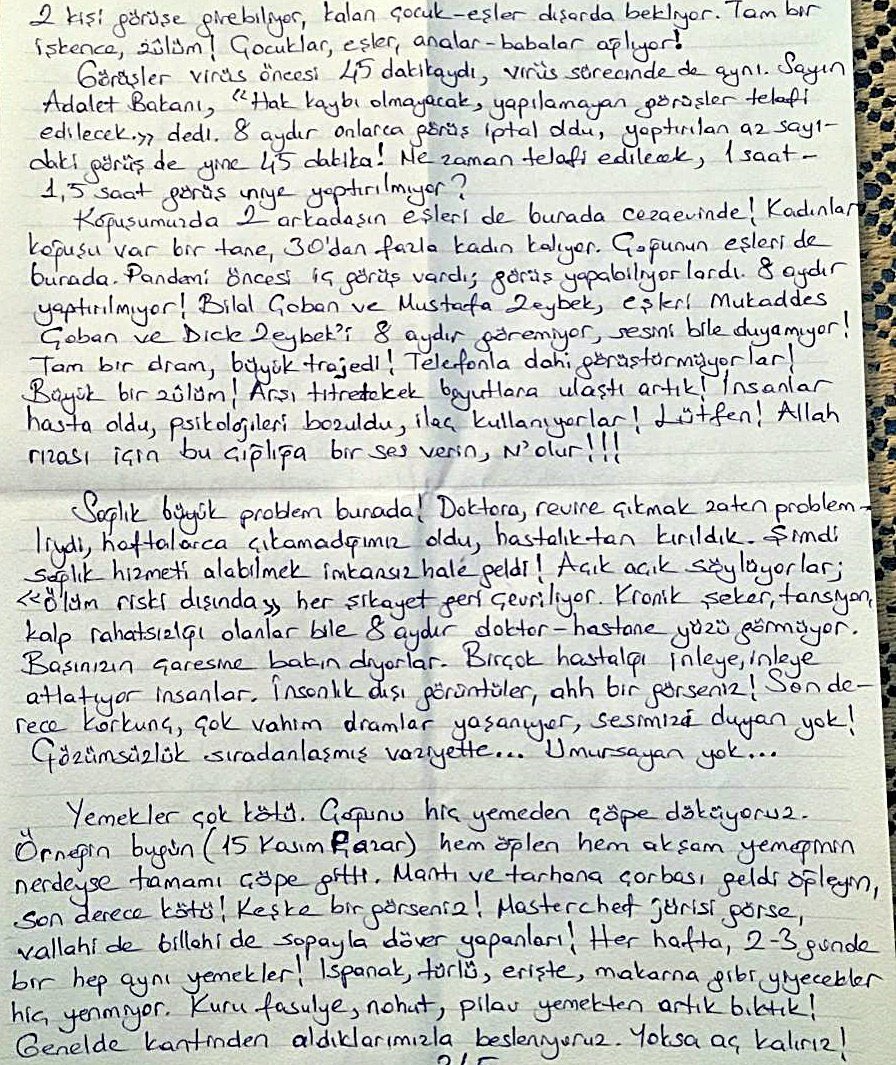 2 kişi görüşe girebiliyor, kalan çocuk-eşler dışarda bekliyor. Tam bir
işkence, zülüm! Çocuklar, eşler, analar-babalar ağlıyor!
Görüşler virüs öncesi 45 dakikaydı, virüs sürecinde de aynı. Sayın
Adalet Bakanı, "Hak kaybı olmayacak, yapılamayan görüşler telafi
edilecek." dedi. 8 aydır onlarca görüş iptal oldu, yaptırılan az sayı-
daki görüş de yine 45 dakika! Ne zaman telafi edilecek, 1 saat-
1,5 saat görüş niye yaptırılmıyor?
Koğuşumuzda 2 arkadaşın eşleri de burada cezaevinde! Kadınlar
koğuşu var bir tane, 30'dan fazla kadın kalıyor. Çoğunun eşleri de
burada. Pandemi öncesi iç görüş vardı; görüş yapabiliyorlardı. 8 aydır
yaptırılmıyor! Bilal Çoban ve Mustafa Zeybek, eşleri Mukaddes
Çoban ve Dicle Zeybek'i 8 aydır göremiyor, sesini bile duyamıyor!
Tam bir dram, büyük trajedi! Telefonla dahi görüştürmüyorlar!
Büyük bir zülüm! Arşı titretecek boyutlara ulaştı artık! İnsanlar
hasta oldu, psikolojileri bozuldu, ilaç kullanıyorlar! Lütfen! Allah
rızası için bu çığlığa bir ses verin, N'olur!!!
Sağlık büyük problem burada! Doktora, revire çıkmak zaten problem-
liydi, haftalarca çıkamadığımız oldu, hastalıktan kırıldık. Şimdi
sağlık hizmeti alabilmek imkansız hale geldi! Açık açık söylüyorlar;
"Ölüm riski dışında" her şikayet geri çevriliyor. Kronik şeker, tansiyon,
kalp rahatsızlığı olanlar bile 8 aydır doktor-hastane yüzü görmüyor.
Başınızın çaresine bakın diyorlar. Birçok hastalığı inleye, inleye
atlatıyor insanlar. İnsanlık dışı görüntüler, ahh bir görseniz! Son de-
rece korkunç, çok vahim dramlar yaşanıyor, sesimizi duyan yok!
Çözümsüzlük sıradanlaşmış vaziyette... Umursayan yok...
Yemekler çok kötü. Çoğunu hiç yemeden çöpe döküyoruz.
Örneğin bugün (15 Kasım Pazar) hem öğlen hem akşam yemeğinin
nerdeyse tamamı çöpe gitti. Mantı ve tarhana çorbası geldi öğleyin,
son derece kötü! Keşke bir görseniz! Masterchef jürisi görse,
vallahi de billahi de sopayla döver yapanları! Her hafta, 2-3 günde
bir hep aynı yemekler! Ispanak, türlü, erişte, makarna gibi yiyecekler
hiç yenmiyor. Kuru fasulye, nohut, pilav yemekten artık bıktık!
Genelde kantinden aldıklarımızla besleniyoruz. Yoksa aç kalırız!
2/5